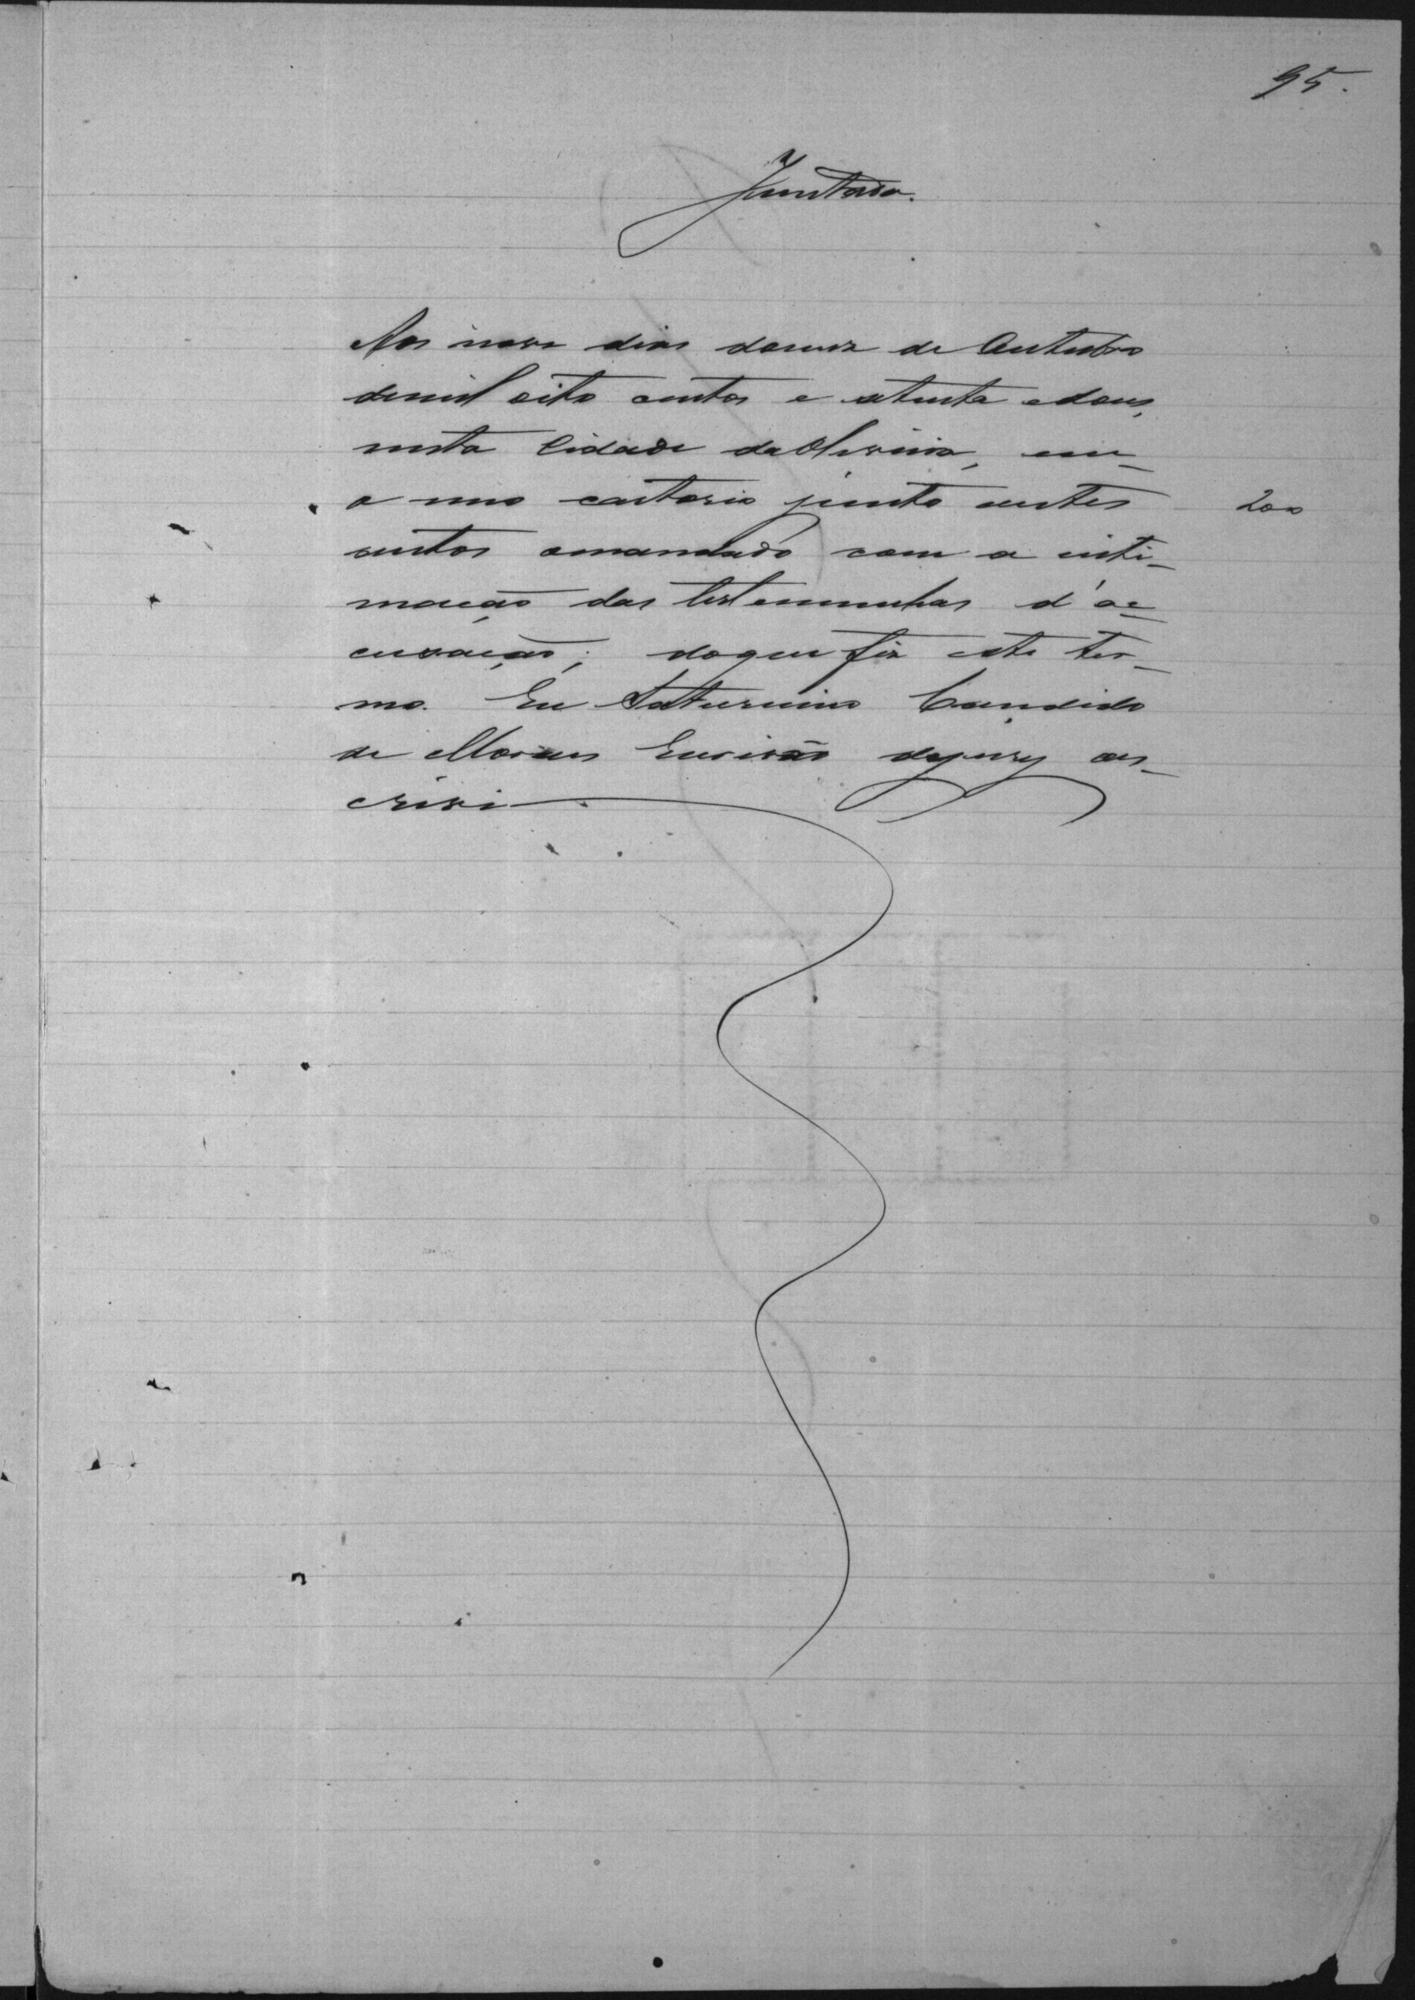 95.
Juntada.
Aos nove dias domez de Outubro
demil oito centos e setenta edous,
nesta Cidade da Oliveira, em
o meo cartorio junto aestes
autos omandado com a inti-
mação das testemunhas d'ac-
cusação; doque fiz este ter-
mo. Eu Saturnino Candido
de Moraes Escrivão dejury es-
crivi
200